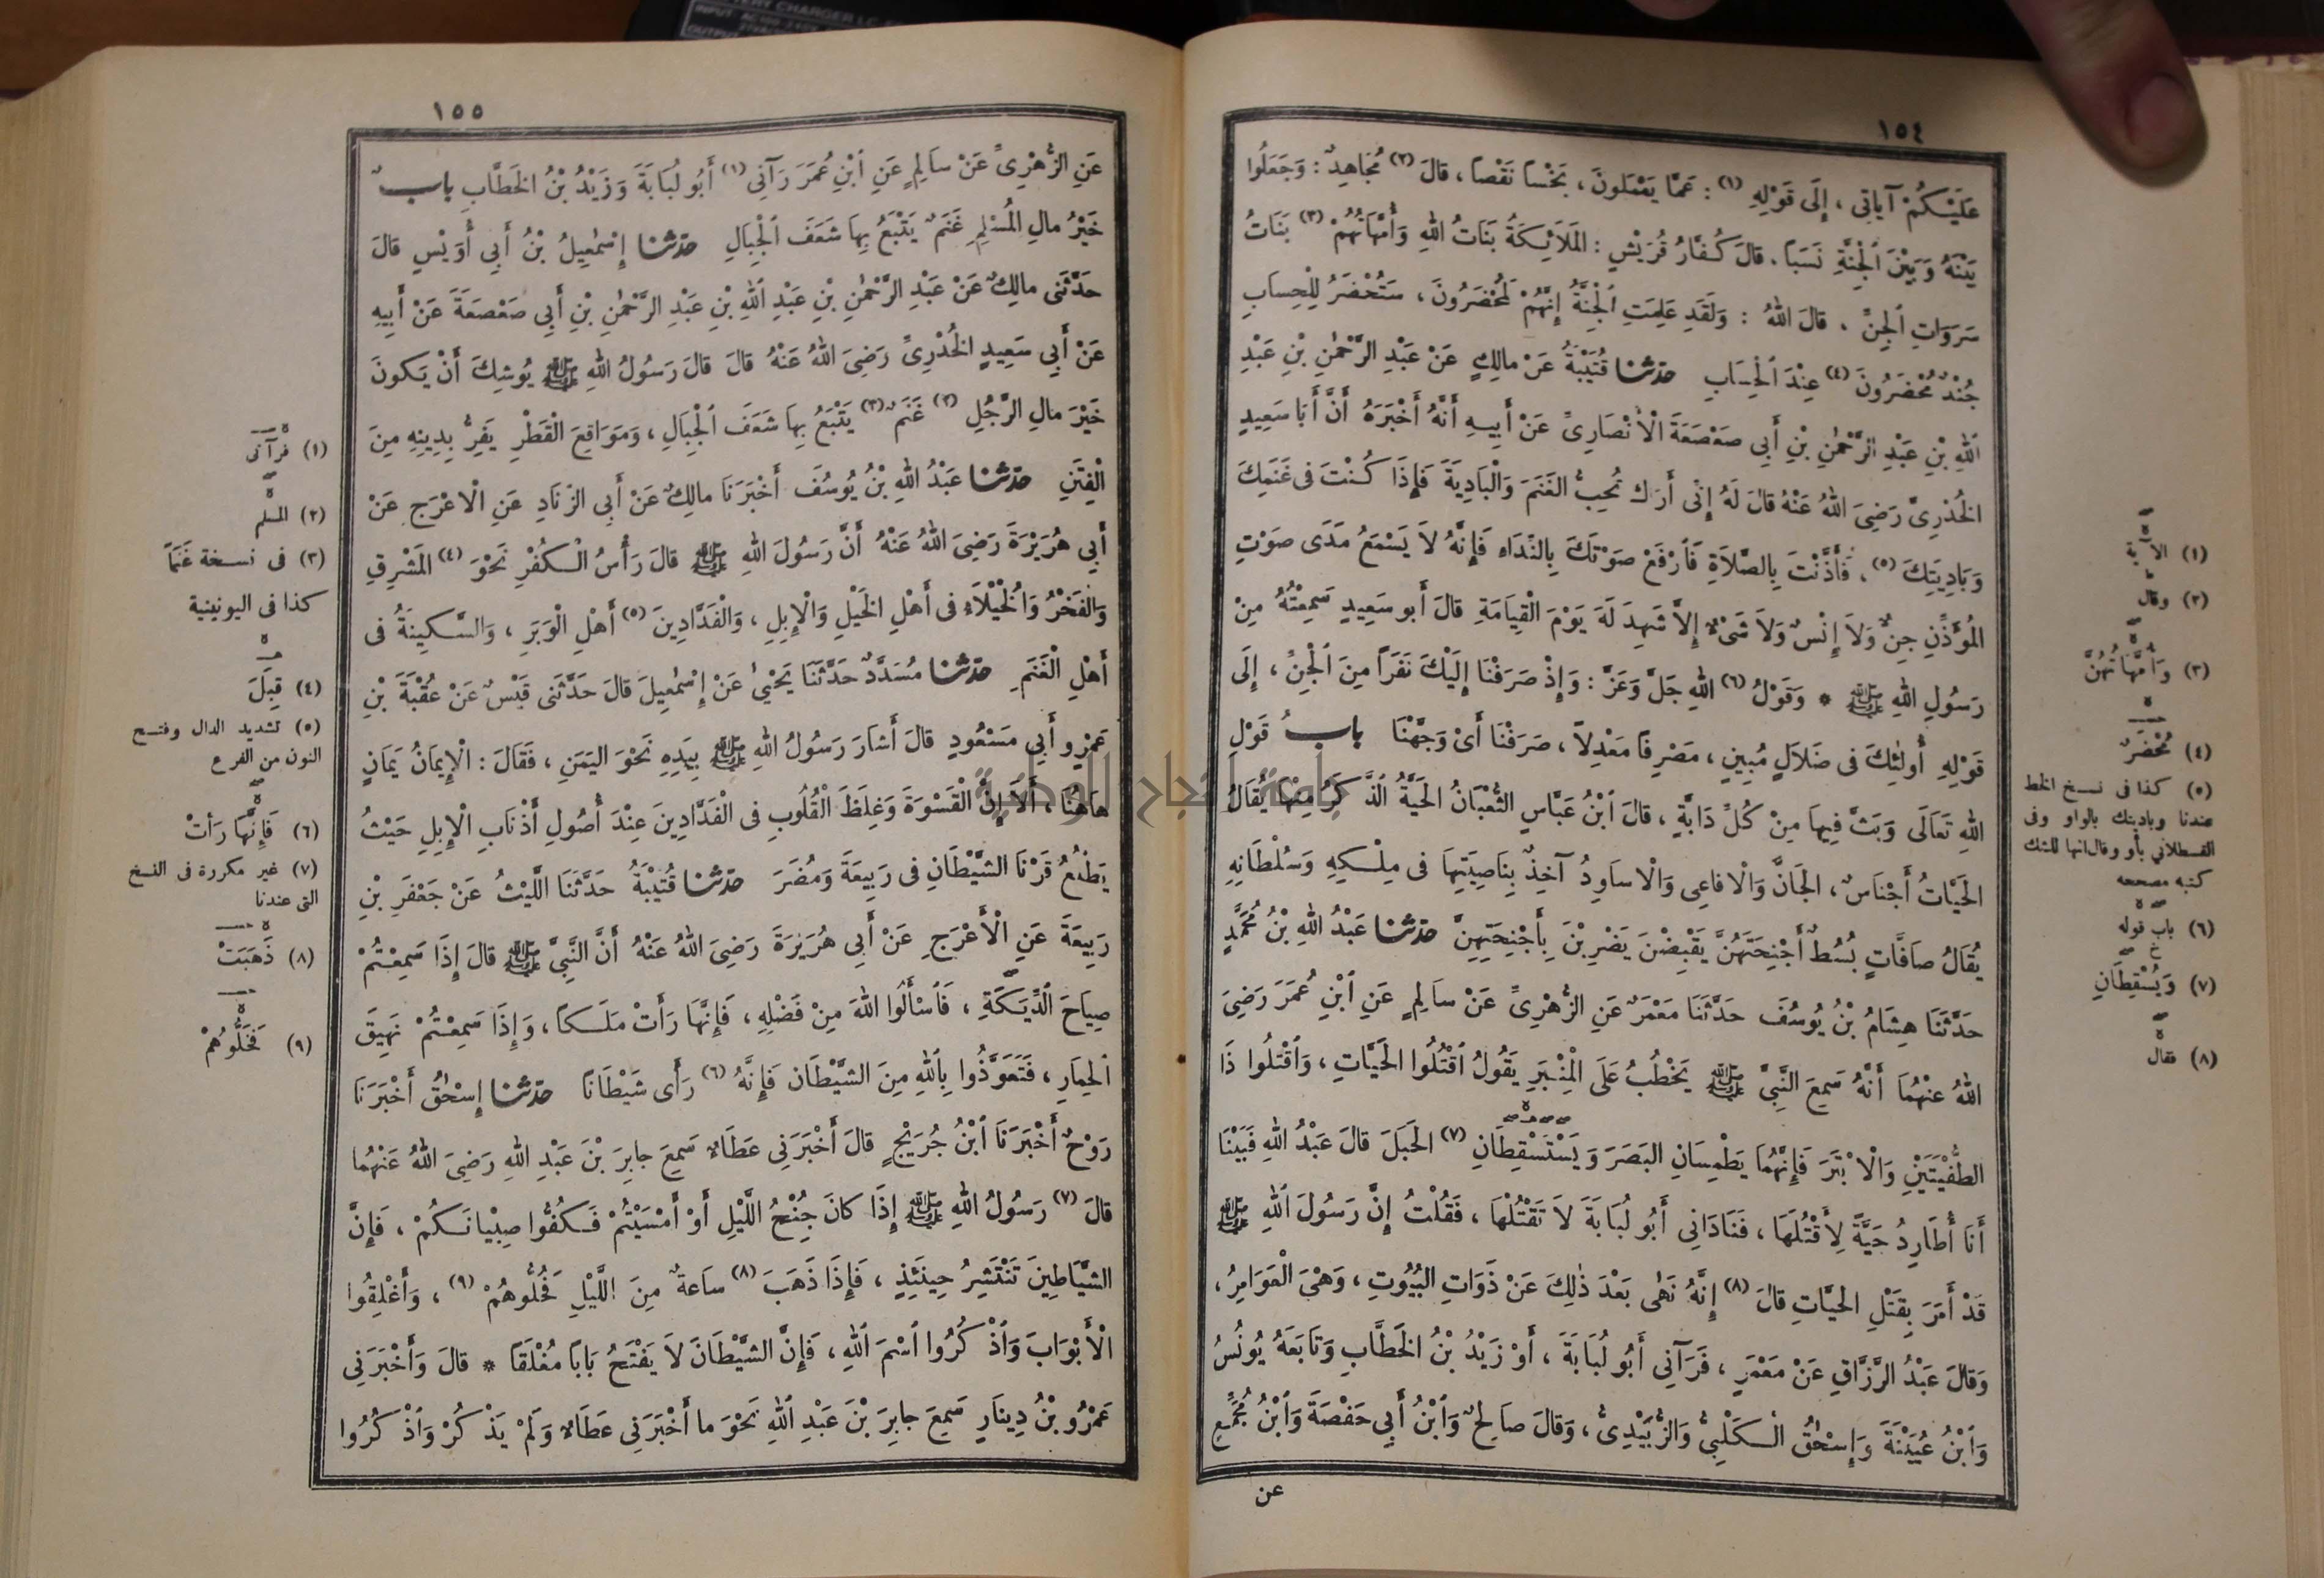 ١٥٤
عَلَيْكُمْ آيَاتِي ، إِلَى قَوْلِهِ (١) : عَمَّا يَعْمَلُونَ ، بَخْسًا نَقْصًا ، قَالَ (٢) مُجَاهِدٌ : وَجَعَلُوا
بَيْنَهُ وَبَيْنَ الْجِنَّةِ نَسَبًا . قَالَ كُفَّارُ قُرَيْشٍ : الْمَلَائِكَةُ بَنَاتُ اللهِ وَأُمَّهَاتُهُمْ (٣) بَنَاتُ
سَرَوَاتِ الْجِنِّ . قَالَ اللهُ : وَلَقَدْ عَلِمَتِ الْجِنَّةُ إِنَّهُمْ لَمُحْضَرُونَ ، سَتُحْضَرُ لِلْحِسَابِ
جُنْدٌ مُحْضَرُونَ (٤) عِنْدَ الْحِسَابِ حَدَّثَنَا قُتَيْبَةُ عَنْ مَالِكٍ عَنْ عَبْدِ الرَّحْمٰنِ بْنِ عَبْدِ
اللهِ بْنِ عَبْدِ الرَّحْمٰنِ بْنِ أَبِي صَعْصَعَةَ الْأَنْصَارِيِّ عَنْ أَبِيهِ أَنَّهُ أَخْبَرَهُ أَنَّ أَبَا سَعِيدٍ
الْخُدْرِيَّ رَضِيَ اللهُ عَنْهُ قَالَ لَهُ إِنِّي أَرَاكَ تُحِبُّ الْغَنَمَ وَالْبَادِيَةَ فَإِذَا كُنْتَ فِي غَنَمِكَ
وَبَادِيَتِكَ (٥) ، فَأَذَّنْتَ بِالصَّلَاةِ فَارْفَعْ صَوْتَكَ بِالنِّدَاءِ فَإِنَّهُ لَا يَسْمَعُ مَدَى صَوْتِ
الْمُؤَذِّنِ جِنٌّ وَلَا إِنْسٌ وَلَا شَيْءٌ إِلَّا شَهِدَ لَهُ يَوْمَ الْقِيَامَةِ قَالَ أَبُو سَعِيدٍ سَمِعْتُهُ مِنْ
رَسُولِ اللهِ ﷺ * وَقَوْلُ (٦) اللهِ جَلَّ وَعَزَّ : وَإِذْ صَرَفْنَا إِلَيْكَ نَفَرًا مِنَ الْجِنِّ ، إِلَى
قَوْلِهِ أُولٰئِكَ فِي ضَلَالٍ مُبِينٍ ، مَصْرِفًا مَعْدِلًا ، صَرَفْنَا أَيْ وَجَّهْنَا بَابُ قَوْلِ
اللهِ تَعَالَى وَبَثَّ فِيهَا مِنْ كُلِّ دَابَّةٍ ، قَالَ ابْنُ عَبَّاسٍ الثُّعْبَانُ الْحَيَّةُ الذَّكَرُ مِنْهَا يُقَالُ
الْحَيَّاتُ أَجْنَاسٌ ، الْجَانُّ وَالْأَفَاعِي وَالْأَسَاوِدُ آخِذٌ بِنَاصِيَتِهَا فِي مِلْكِهِ وَسُلْطَانِهِ
يُقَالُ صَافَّاتٍ بُسُطٌ أَجْنِحَتَهُنَّ يَقْبِضْنَ يَضْرِبْنَ بِأَجْنِحَتِهِنَّ حَدَّثَنَا عَبْدُ اللهِ بْنُ مُحَمَّدٍ
حَدَّثَنَا هِشَامُ بْنُ يُوسُفَ حَدَّثَنَا مَعْمَرٌ عَنِ الزُّهْرِيِّ عَنْ سَالِمٍ عَنِ ابْنِ عُمَرَ رَضِيَ
اللهُ عَنْهُمَا أَنَّهُ سَمِعَ النَّبِيَّ ﷺ يَخْطُبُ عَلَى الْمِنْبَرِ يَقُولُ اقْتُلُوا الْحَيَّاتِ ، وَاقْتُلُوا ذَا
الطُّفْيَتَيْنِ وَالْأَبْتَرَ فَإِنَّهُمَا يَطْمِسَانِ الْبَصَرَ وَيَسْتَسْقِطَانِ (٧) الْحَبَلَ قَالَ عَبْدُ اللهِ فَبَيْنَا
أَنَا أُطَارِدُ حَيَّةً لِأَقْتُلَهَا ، فَنَادَانِي أَبُو لُبَابَةَ لَا تَقْتُلْهَا ، فَقُلْتُ إِنَّ رَسُولَ اللهِ ﷺ
قَدْ أَمَرَ بِقَتْلِ الْحَيَّاتِ قَالَ (٨) إِنَّهُ نَهَى بَعْدَ ذٰلِكَ عَنْ ذَوَاتِ الْبُيُوتِ ، وَهْيَ الْعَوَامِرُ ،
وَقَالَ عَبْدُ الرَّزَّاقِ عَنْ مَعْمَرٍ ، فَرَآنِي أَبُو لُبَابَةَ ، أَوْ زَيْدُ بْنُ الْخَطَّابِ وَتَابَعَهُ يُونُسُ
وَابْنُ عُيَيْنَةَ وَإِسْحٰقُ الْكَلْبِيُّ وَالزُّبَيْدِيُّ ، وَقَالَ صَالِحٌ وَابْنُ أَبِي حَفْصَةَ وَابْنُ مُجَمِّعٍ
عن
(١) الآية
(٢) وقال
(٣) وَأُمَّهَاتُهُنَّ
(٤) مُحْضَرٌ
(٥) كذا فى نسخ الخط
عندنا وباديتك بالواو وفى
القسطلاني بأو وقال انها للشك
كتبه مصححه
(٦) باب قوله
(٧) وَيُسْقِطَانِ
(٨) فقال
١٥٥
عَنِ الزُّهْرِيِّ عَنْ سَالِمٍ عَنِ ابْنِ عُمَرَ رَآنِي (١) أَبُو لُبَابَةَ وَزَيْدُ بْنُ الْخَطَّابِ بَابٌ
خَيْرُ مَالِ الْمُسْلِمِ غَنَمٌ يَتْبَعُ بِهَا شَعَفَ الْجِبَالِ حَدَّثَنَا إِسْمٰعِيلُ بْنُ أَبِي أُوَيْسٍ قَالَ
حَدَّثَنِي مَالِكٌ عَنْ عَبْدِ الرَّحْمٰنِ بْنِ عَبْدِ اللهِ بْنِ عَبْدِ الرَّحْمٰنِ بْنِ أَبِي صَعْصَعَةَ عَنْ أَبِيهِ
عَنْ أَبِي سَعِيدٍ الْخُدْرِيِّ رَضِيَ اللهُ عَنْهُ قَالَ قَالَ رَسُولُ اللهِ ﷺ يُوشِكُ أَنْ يَكُونَ
خَيْرَ مَالِ الرَّجُلِ (٢) غَنَمٌ (٣) يَتْبَعُ بِهَا شَعَفَ الْجِبَالِ ، وَمَوَاقِعَ الْقَطْرِ يَفِرُّ بِدِينِهِ مِنَ
الْفِتَنِ حَدَّثَنَا عَبْدُ اللهِ بْنُ يُوسُفَ أَخْبَرَنَا مَالِكٌ عَنْ أَبِي الزِّنَادِ عَنِ الْأَعْرَجِ عَنْ
أَبِي هُرَيْرَةَ رَضِيَ اللهُ عَنْهُ أَنَّ رَسُولَ اللهِ ﷺ قَالَ رَأْسُ الْكُفْرِ نَحْوَ (٤) الْمَشْرِقِ
وَالْفَخْرُ وَالْخُيَلَاءُ فِي أَهْلِ الْخَيْلِ وَالْإِبِلِ ، وَالْفَدَّادِينَ (٥) أَهْلِ الْوَبَرِ ، وَالسَّكِينَةُ فِي
أَهْلِ الْغَنَمِ حَدَّثَنَا مُسَدَّدٌ حَدَّثَنَا يَحْيٰى عَنْ إِسْمٰعِيلَ قَالَ حَدَّثَنِي قَيْسٌ عَنْ عُقْبَةَ بْنِ
عَمْرٍو أَبِي مَسْعُودٍ قَالَ أَشَارَ رَسُولُ اللهِ ﷺ بِيَدِهِ نَحْوَ الْيَمَنِ ، فَقَالَ : الْإِيمَانُ يَمَانٍ
هَاهُنَا ، أَلَا إِنَّ الْقَسْوَةَ وَغِلَظَ الْقُلُوبِ فِي الْفَدَّادِينَ عِنْدَ أُصُولِ أَذْنَابِ الْإِبِلِ حَيْثُ
يَطْلُعُ قَرْنَا الشَّيْطَانِ فِي رَبِيعَةَ وَمُضَرَ حَدَّثَنَا قُتَيْبَةُ حَدَّثَنَا اللَّيْثُ عَنْ جَعْفَرِ بْنِ
رَبِيعَةَ عَنِ الْأَعْرَجِ عَنْ أَبِي هُرَيْرَةَ رَضِيَ اللهُ عَنْهُ أَنَّ النَّبِيَّ ﷺ قَالَ إِذَا سَمِعْتُمْ
صِيَاحَ الدِّيَكَةِ ، فَاسْأَلُوا اللهَ مِنْ فَضْلِهِ ، فَإِنَّهَا رَأَتْ مَلَكًا ، وَإِذَا سَمِعْتُمْ نَهِيقَ
الْحِمَارِ ، فَتَعَوَّذُوا بِاللهِ مِنَ الشَّيْطَانِ فَإِنَّهُ (٦) رَأَى شَيْطَانًا حَدَّثَنَا إِسْحٰقُ أَخْبَرَنَا
رَوْحٌ أَخْبَرَنَا ابْنُ جُرَيْجٍ قَالَ أَخْبَرَنِي عَطَاءٌ سَمِعَ جَابِرَ بْنَ عَبْدِ اللهِ رَضِيَ اللهُ عَنْهُمَا
قَالَ (٧) رَسُولُ اللهِ ﷺ إِذَا كَانَ جُنْحُ اللَّيْلِ أَوْ أَمْسَيْتُمْ فَكُفُّوا صِبْيَانَكُمْ ، فَإِنَّ
الشَّيَاطِينَ تَنْتَشِرُ حِينَئِذٍ ، فَإِذَا ذَهَبَ (٨) سَاعَةٌ مِنَ اللَّيْلِ فَخُلُّوهُمْ (٩) ، وَأَغْلِقُوا
الْأَبْوَابَ وَاذْكُرُوا اسْمَ اللهِ ، فَإِنَّ الشَّيْطَانَ لَا يَفْتَحُ بَابًا مُغْلَقًا * قَالَ وَأَخْبَرَنِي
عَمْرُو بْنُ دِينَارٍ سَمِعَ جَابِرَ بْنَ عَبْدِ اللهِ نَحْوَ مَا أَخْبَرَنِي عَطَاءٌ وَلَمْ يَذْكُرْ وَاذْكُرُوا
(١) فرآنى
(٢) المسلم
(٣) فى نسخة غَنَمًا
كذا فى اليونينية
(٤) قِبَلَ
(٥) تشديد الدال وفتح
النون من الفرع
(٦) فَإِنَّهَا رَأَتْ
(٧) غير مكررة فى النسخ
التى عندنا
(٨) ذَهَبَتْ
(٩) فَحَلُّوهُمْ
جامعة النجاح الوطنية